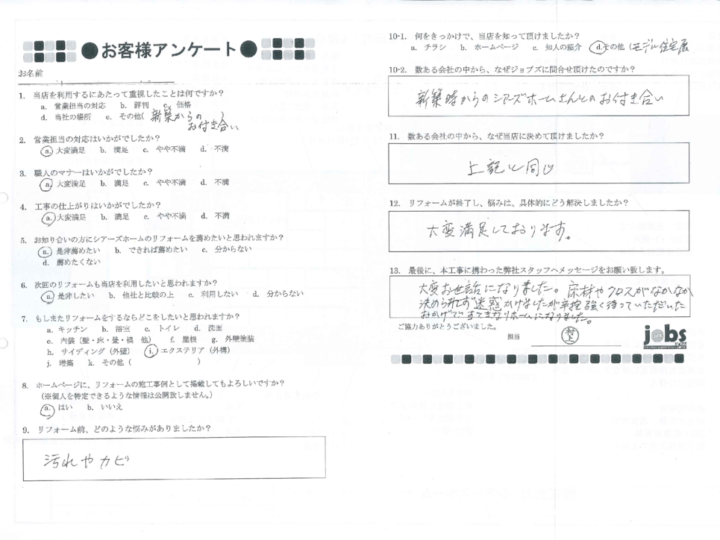 お客様アンケート
お名前
1. 当店を利用するにあたって重視したことは何ですか?
a. 営業担当の対応 b. 評判 c. 価格
d. 当社の場所 e. その他( 新築からの
お付き合い )
2. 営業担当の対応はいかがでしたか?
a. 大変満足 b. 満足 c. やや不満 d. 不満
3. 職人のマナーはいかがでしたか?
a. 大変満足 b. 満足 c. やや不満 d. 不満
4. 工事の仕上がりはいかがでしたか?
a. 大変満足 b. 満足 c. やや不満 d. 不満
5. お知り合いの方にシアーズホームのリフォームを薦めたいと思われますか?
a. 是非薦めたい b. できれば薦めたい c. 分からない
d. 薦めたくない
6. 次回のリフォームも当店を利用したいと思われますか?
a. 是非したい b. 他社と比較の上 c. 利用しない d. 分からない
7. もしまたリフォームをするならどこをしたいと思われますか?
a. キッチン b. 浴室 c. トイレ d. 洗面
e. 内装(壁・床・畳・襖 他) f. 屋根 g. 外壁塗装
h. サイディング(外壁) i. エクステリア(外構)
j. 増築 k. その他( )
8. ホームページに、リフォームの施工事例として掲載してもよろしいですか?
(※個人を特定できるような情報は公開致しません。)
a. はい b. いいえ
9. リフォーム前、どのような悩みがありましたか?
汚れやカビ
10-1. 何をきっかけで、当店を知って頂けましたか?
a. チラシ b. ホームページ c. 知人の紹介 d. その他(モデル住宅展
10-2. 数ある会社の中から、なぜジョブズに問合せ頂けたのですか?
新築時からのシアーズホームさんとのお付き合い
11. 数ある会社の中から、なぜ当店に決めて頂けましたか?
上記と同じ
12. リフォームが終了し、悩みは、具体的にどう解決しましたか?
大変満足しております。
13. 最後に、本工事に携わった弊社スタッフへメッセージをお願い致します。
大変お世話になりました。床材やクロスがなかなか
決められず迷惑かけましたが辛抱強く待っていただいた
おかげでまとまるリホームになりました。
ご協力ありがとうございました。
担当
jobs